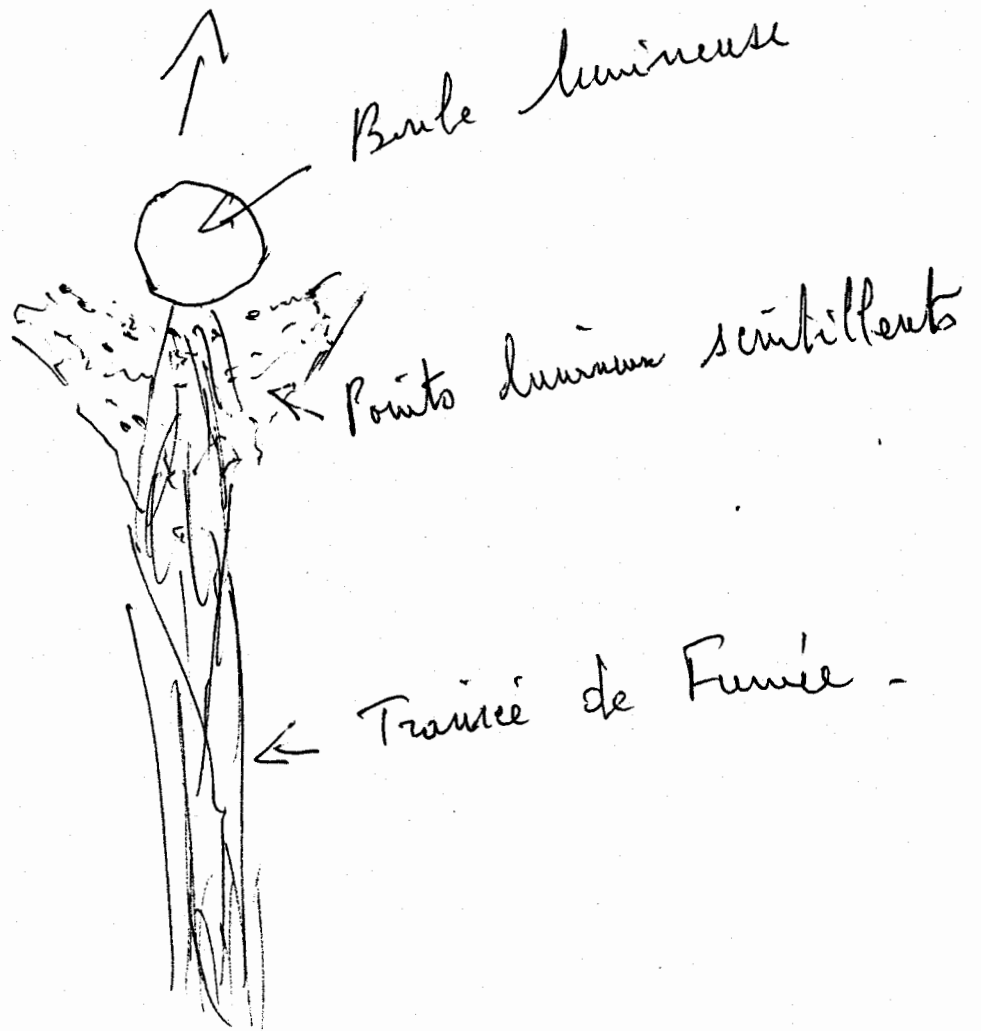 Boule lumineuse
Points lumineux scintillents
Trainée de Fumée -